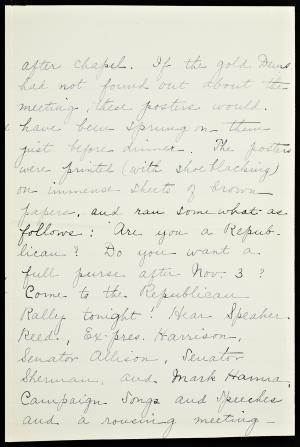 after chapel. If the gold Dems
had not found out about the
meeting, these posters would
have been sprung on them
just before dinner. The posters
were printed (with shoeblacking)
on immense sheets of brown
papers, and ran some what as
follows: Are you a Repub-
lican? Do you want a
full purse after Nov. 3?
Come to the Republican
Rally tonight! Hear Speaker
Reed, Ex-pres. Harrison,
Senator Allison, Senator
Sherman, and Mark Hanna,
Campaign Songs and Speeches
and a rousing meeting -